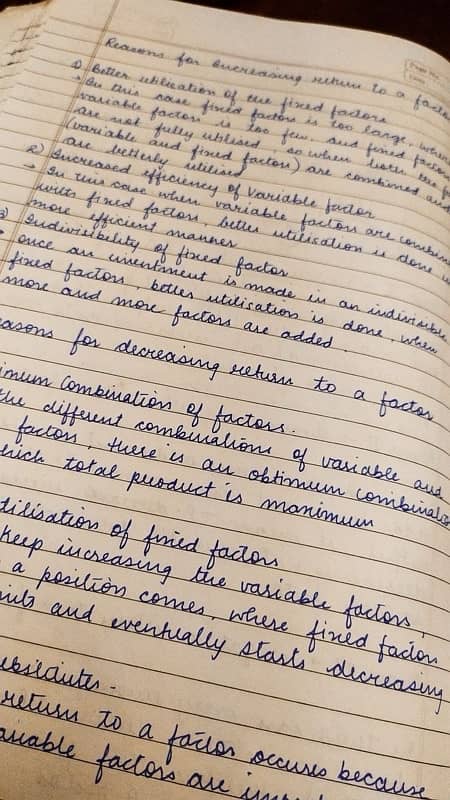 Reasons for Increasing return to a facto
1) Better utilisation of the fixed factors
• In this case fixed factors is too large, when
variable factors is too few, and fixed factor
are not fully utilised, so when both the f
(variable and fixed factors) are combined and
are betterly utilised
2) Increased efficiency of Variable factor
• In this case when variable factors are combin
with fixed factors, better utilisation is done
more efficient manner
3) Indivisibility of fixed factor
• once an investment is made in an indivisible
fixed factors, better utilisation is done, when
more and more factors are added.
easons for decreasing return to a factor
imum Combination of factors.
the different combinations of variable and
factors, there is an obtimum combinatio
hich total product is maximum
tilisation of fixed factors
keep increasing the variable factors,
a position comes, where fixed factor
and eventually starts decreasing
ubstitutes.
return to a factor occurs because
ariable factors are